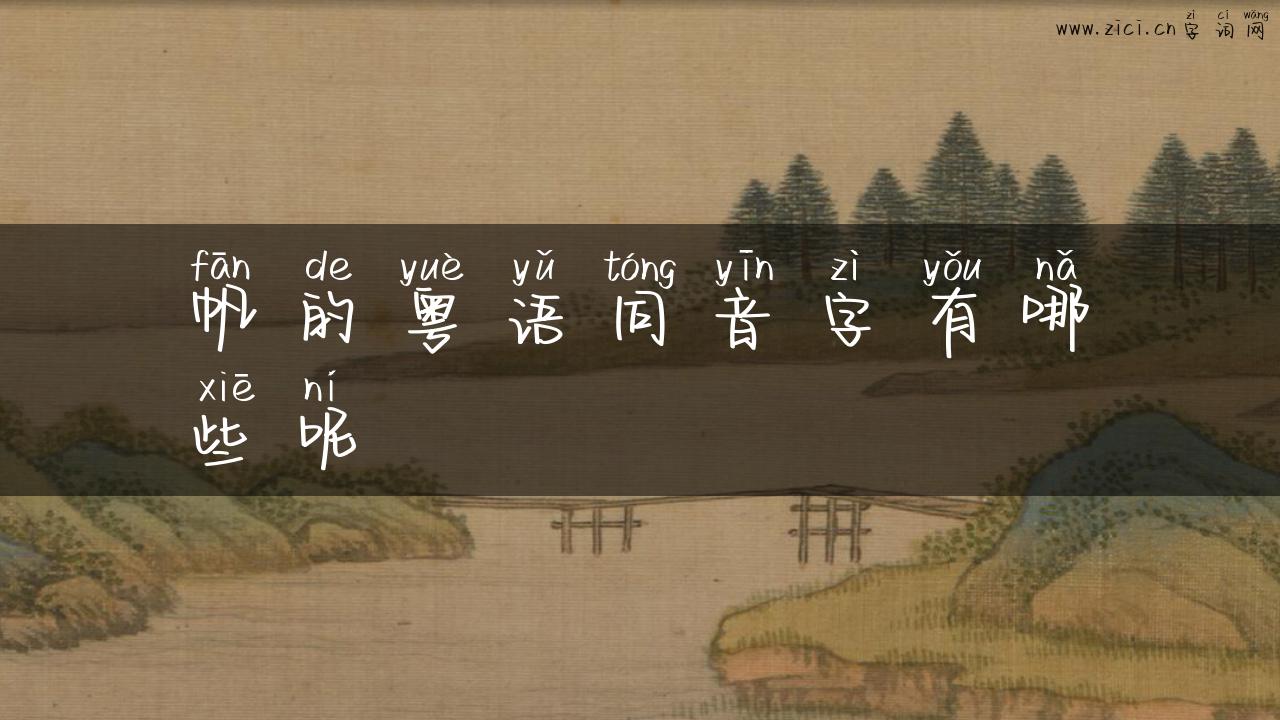 zì cí wǎng
www.zici.cn 字 词 网
fān de yuè yǔ tóng yīn zì yǒu nǎ
帆 的 粤 语 同 音 字 有 哪
xiē ní
些 呢